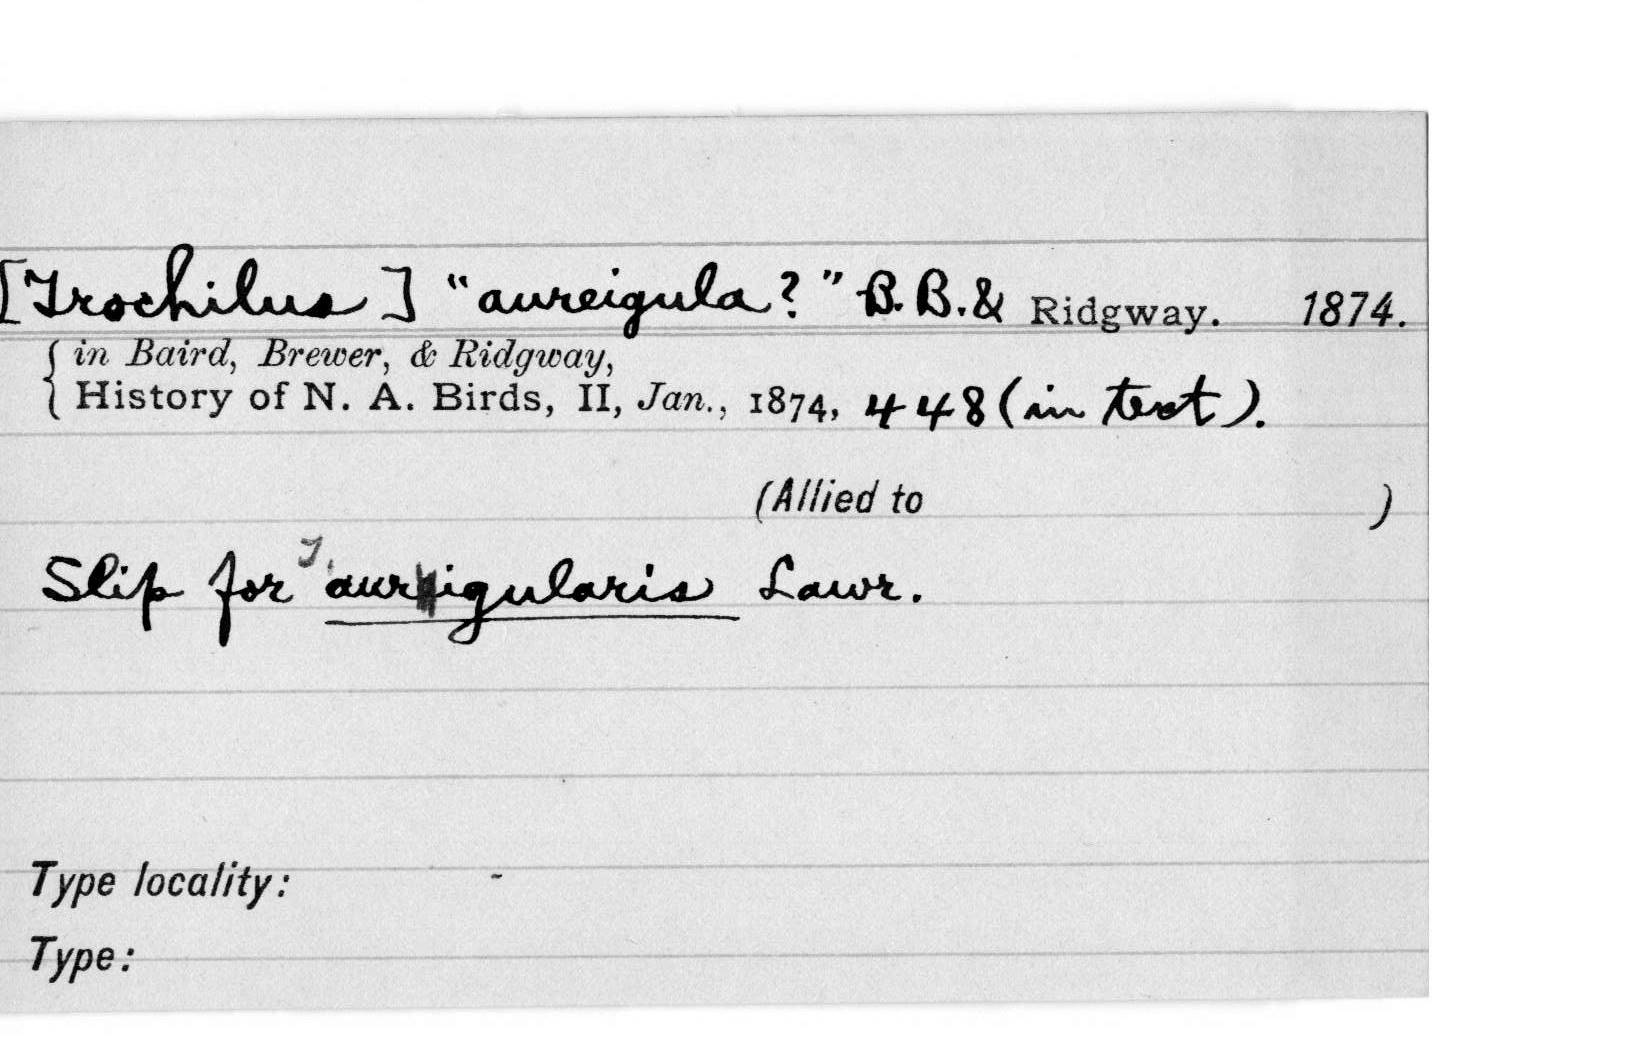 [Trochilus] "aureigula?" B. B. & Ridgway. 1874.
in Baird, Brewer, & Ridgway,
History of N. A. Birds, II, Jan., 1874, 448 (in text).
(Allied to )
Slip for T. aurigularis Lawr.
Type locality: -
Type: